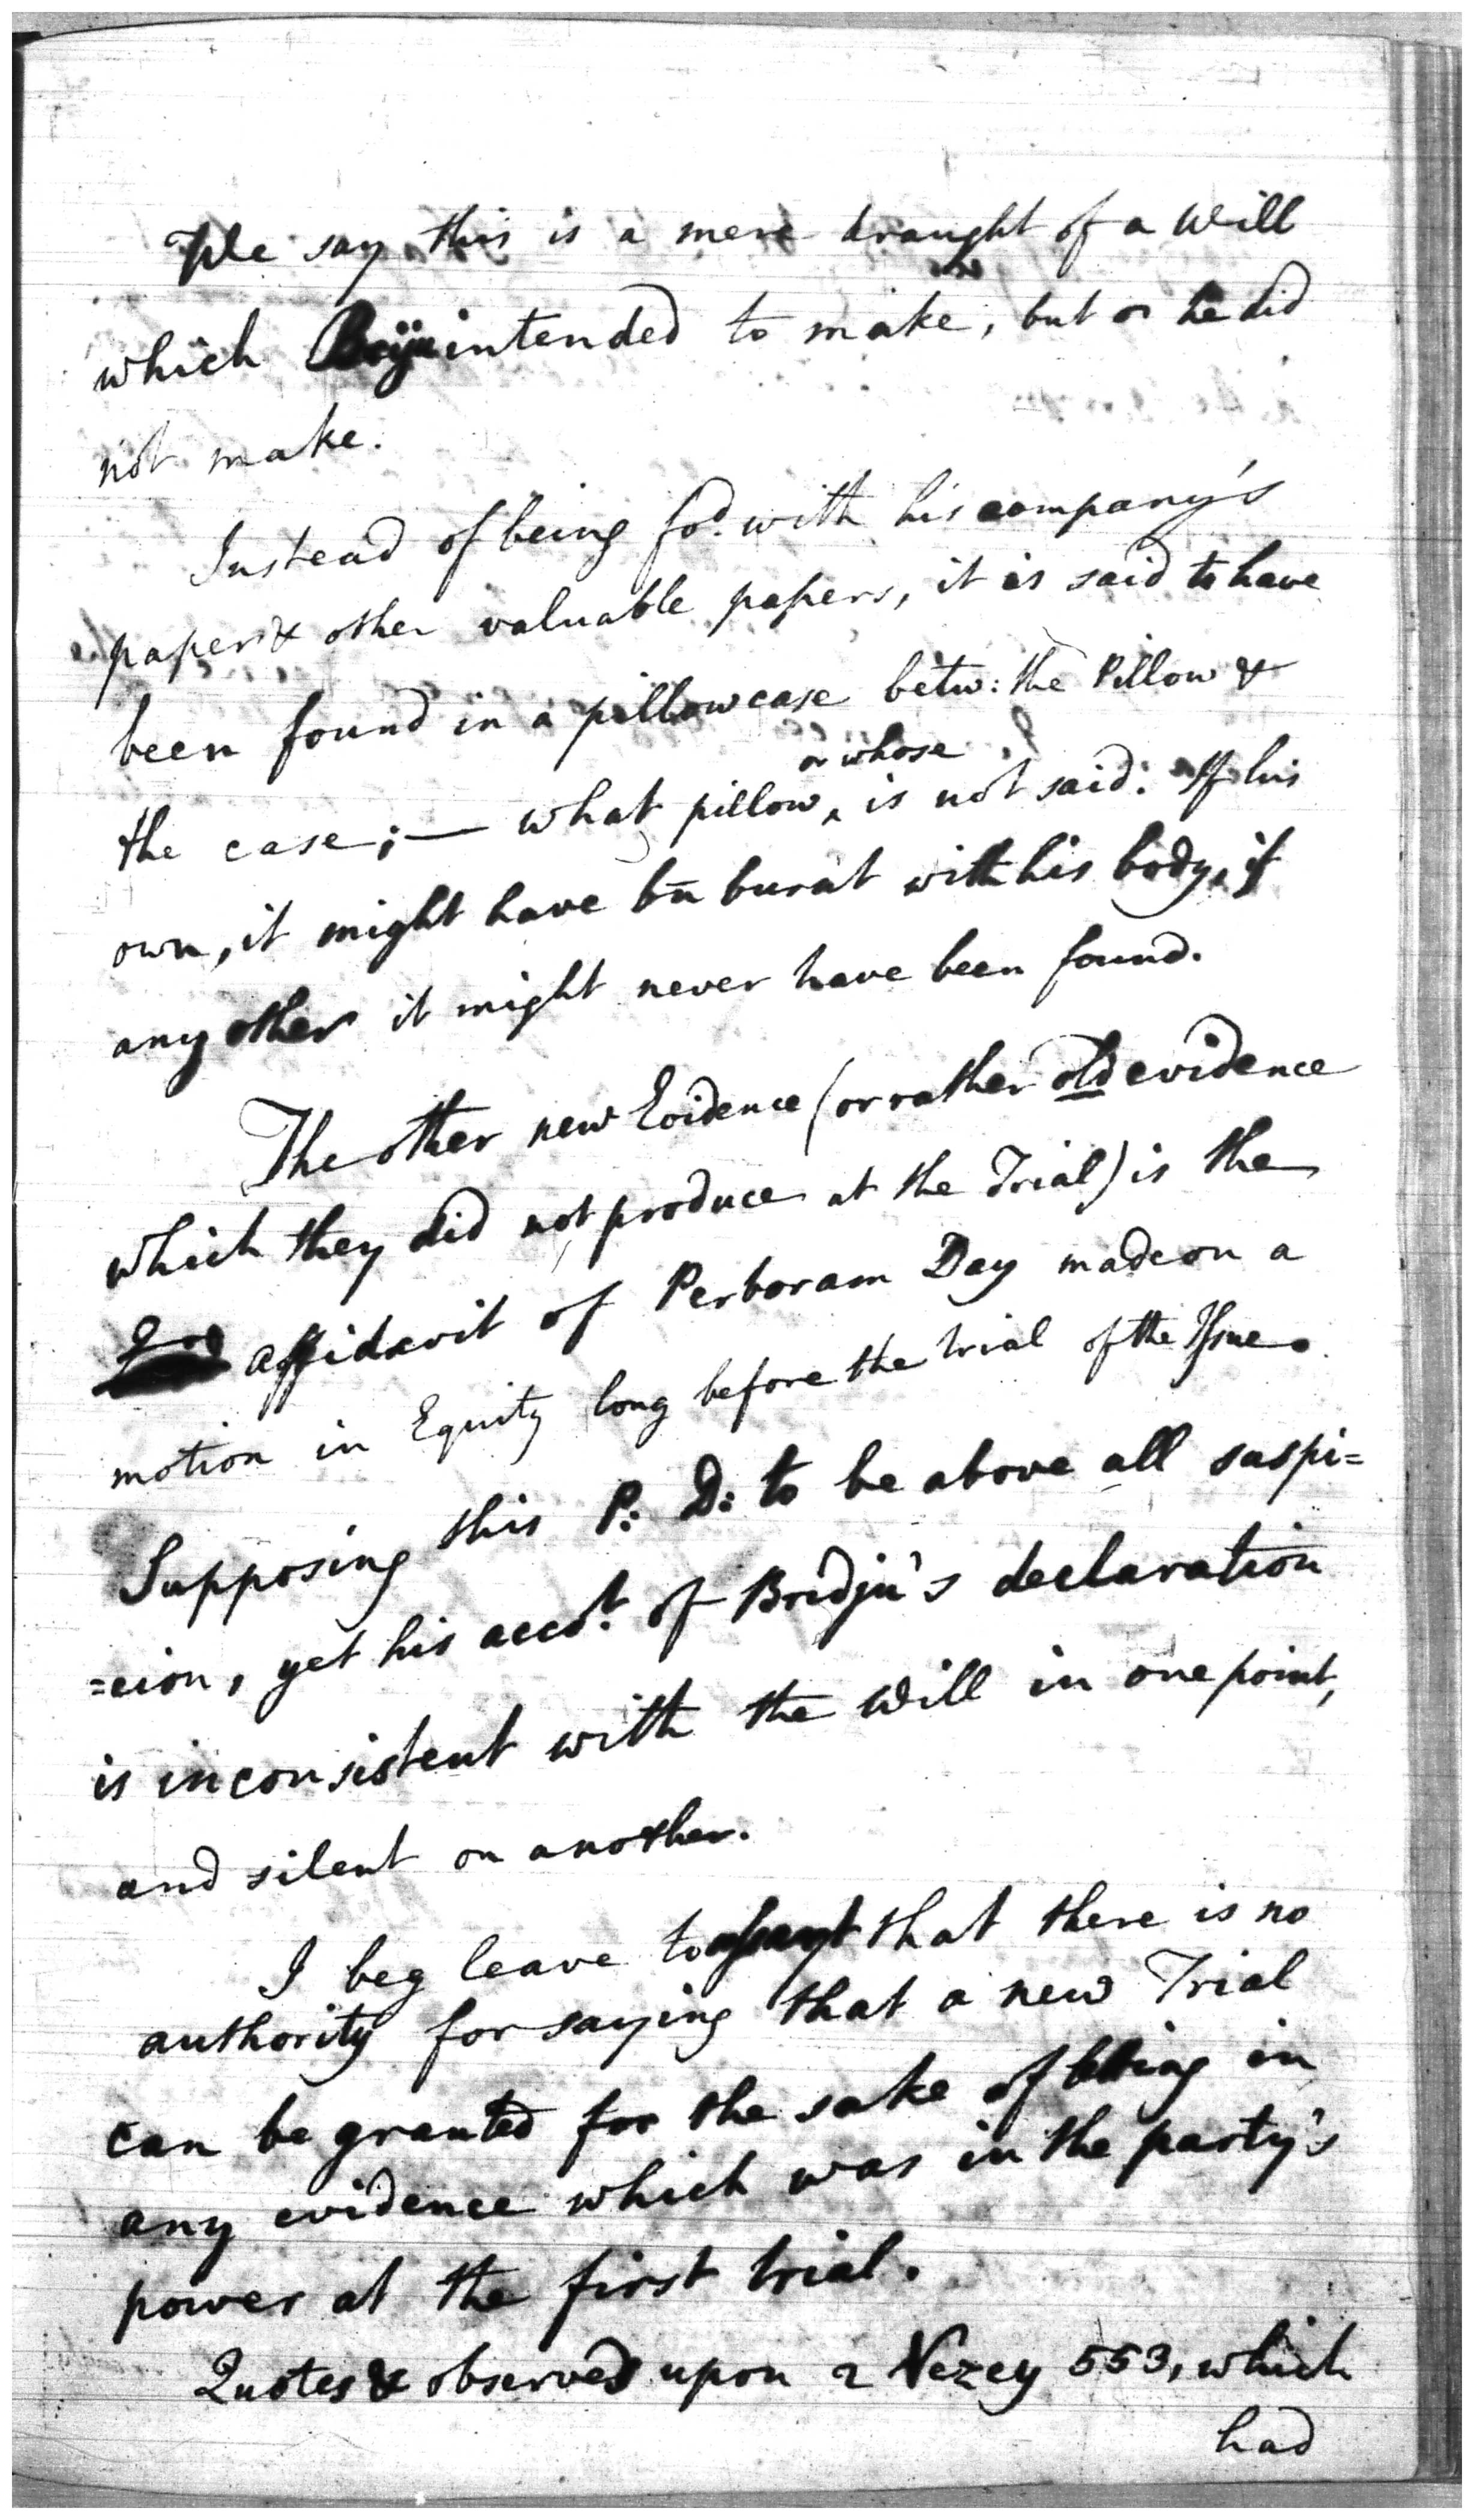 We say this is a mere draught of a Will
which Briju intended to make, but he did
not make.
Instead of being fod. with his company's
paper & other valuable papers, it is said to have
been found in a pillowcase betw: the Pillow &
or whose
the case; — what pillow, is not said: If his
own, it might have bn burnt with his body, if
any other it might never have been found.
The other new Evidence (or rather old evidence
which they did not produce at the Trial) is the
affidavit of Perboram Dey made on a
motion in Equity long before the trial of the Issue.
Supposing this P: D: to be above all suspi=
=cion, yet his accot. of Bridju's declaration
is inconsistent with the Will in one point,
and silent on another.
I beg leave to that there is no
authority for saying that a new Trial
can be granted for the sake of in
any evidence which was in the party's
power at the first trial.
Quotes & observes upon 2 Vezey 553, which
had